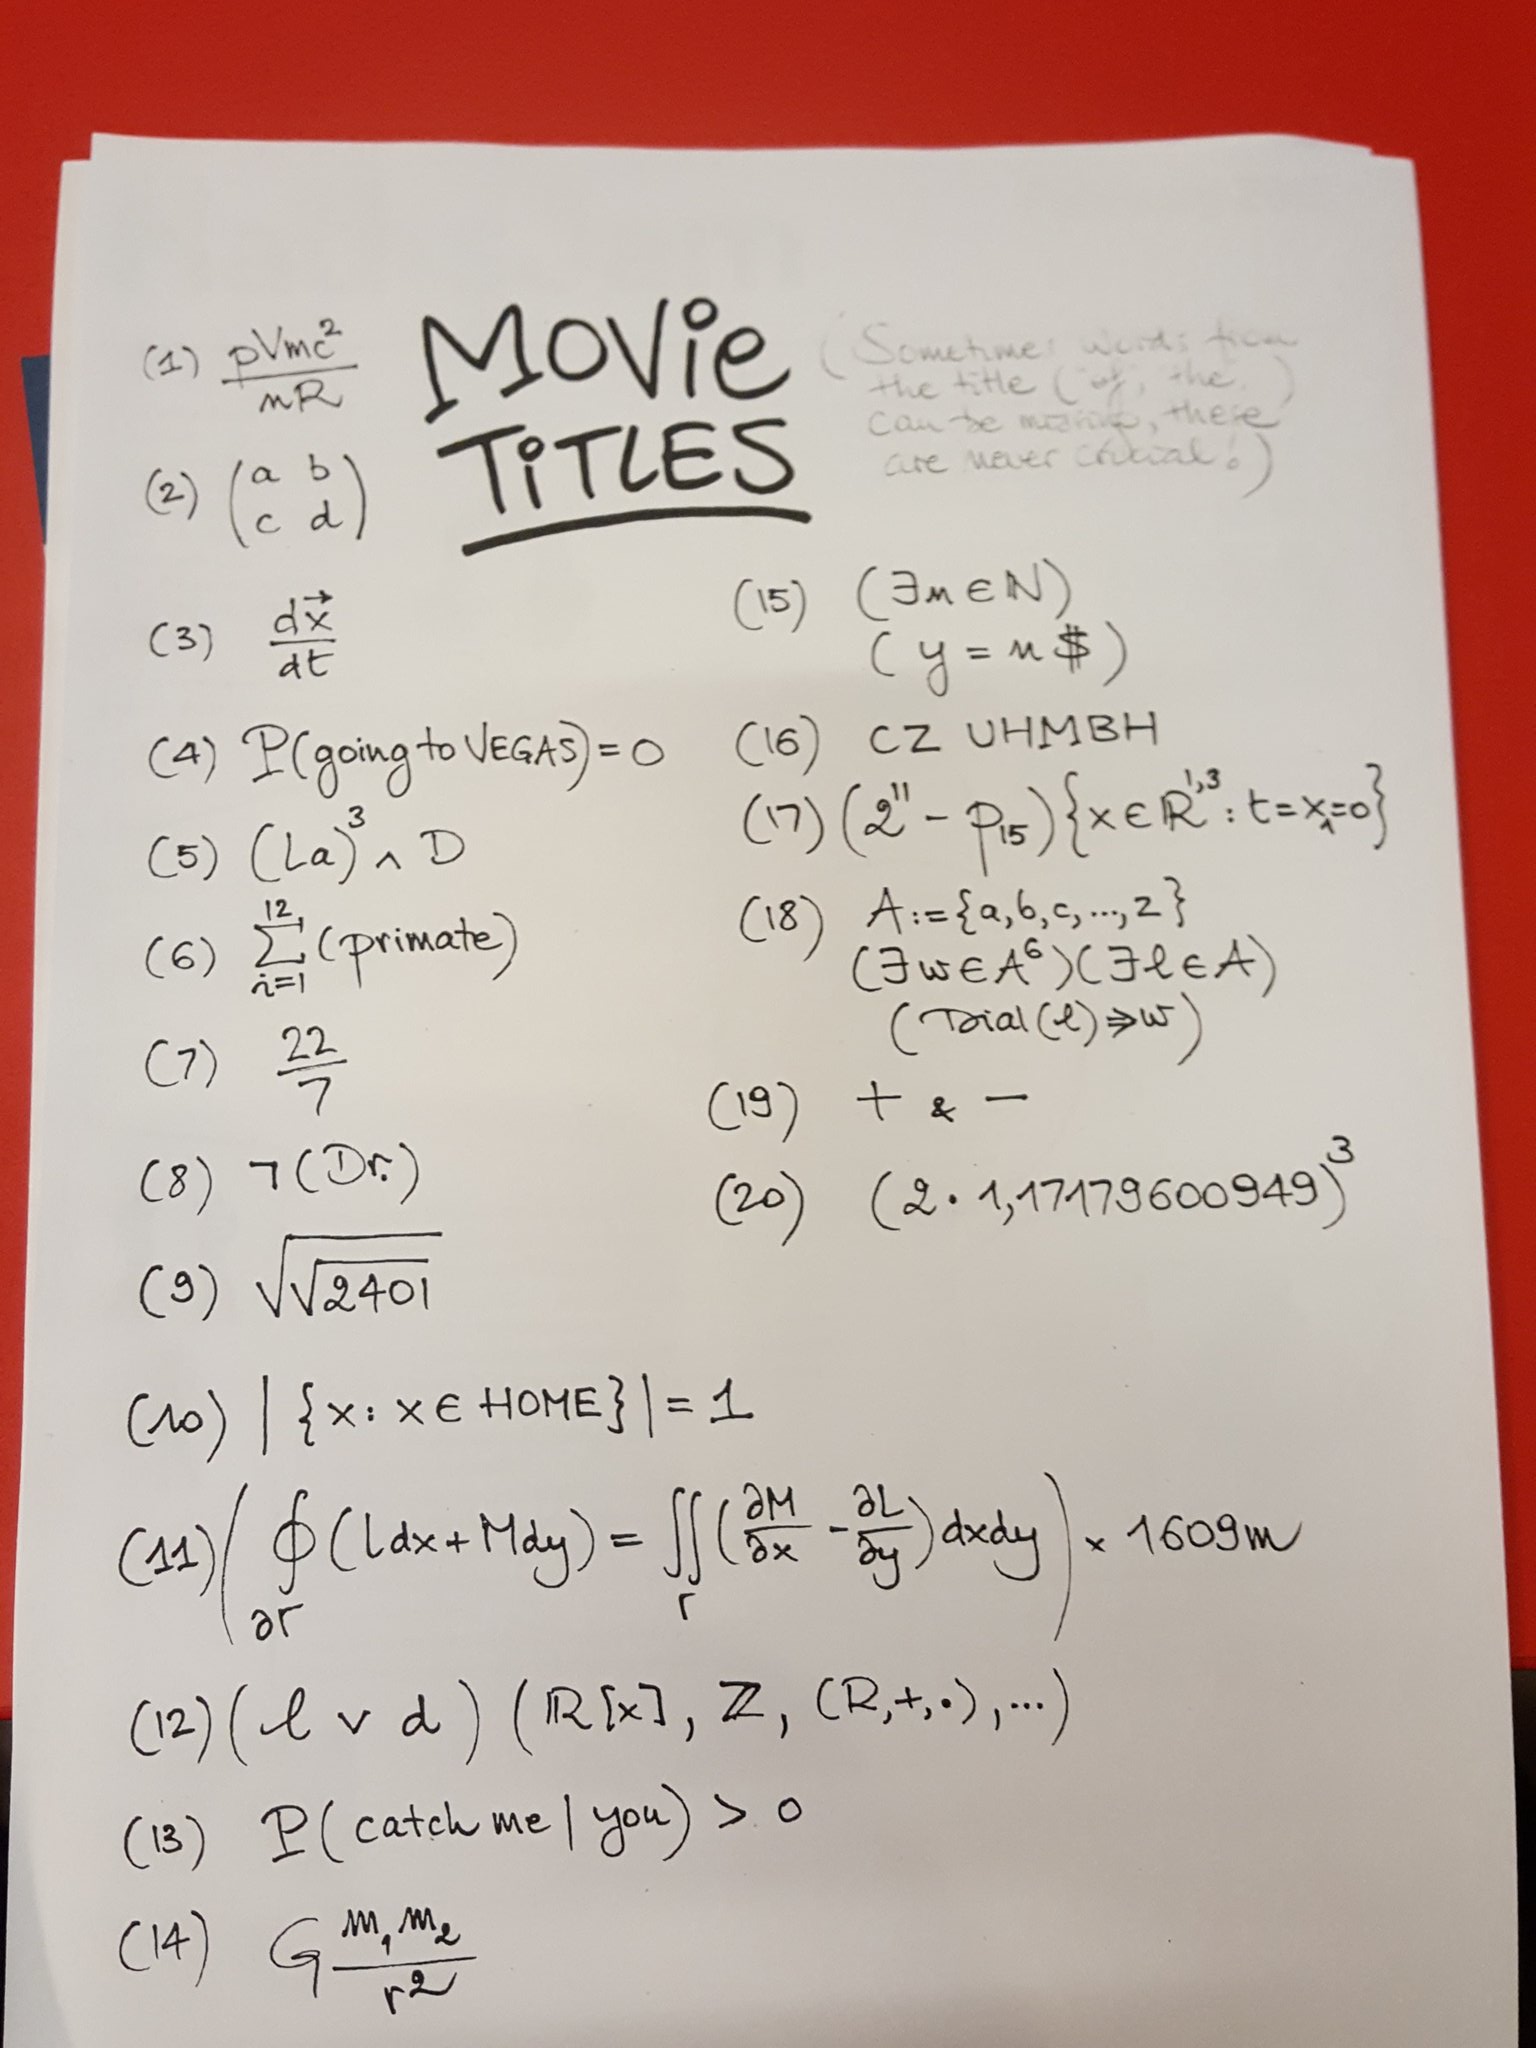 MOVie
TiTLES
(Sometimes words from
the title ("of", the...)
can be missing, these
are never crucial!)
(1) pVmc²/nR
(2) (a b
c d)
(3) dx⃗/dt
(4) P(going to VEGAS) = 0
(5) (La)³ ∧ D
(6) ∑_{i=1}^{12} (primate)
(7) 22/7
(8) ¬(Dr.)
(9) √√2401
(10) |{x: x ∈ HOME}| = 1
(11) (∮_{∂Γ} (Ldx + Mdy) = ∬_Γ (∂M/∂x - ∂L/∂y) dxdy) × 1609m
(12) (l ∨ d) (ℝ[x], ℤ, (R,+,·), ...)
(13) P(catch me | you) > 0
(14) G m₁m₂/r²
(15) (∃n∈ℕ)
(y = n$)
(16) CZ UHMBH
(17) (2¹¹ - p₁₅){x∈ℝ^{1,3}: t=x₁=0}
(18) A:={a,b,c,...,z}
(∃w∈A⁶)(∃l∈A)
(Dial(l)⇒w)
(19) + & -
(20) (2·1,17179600949)³